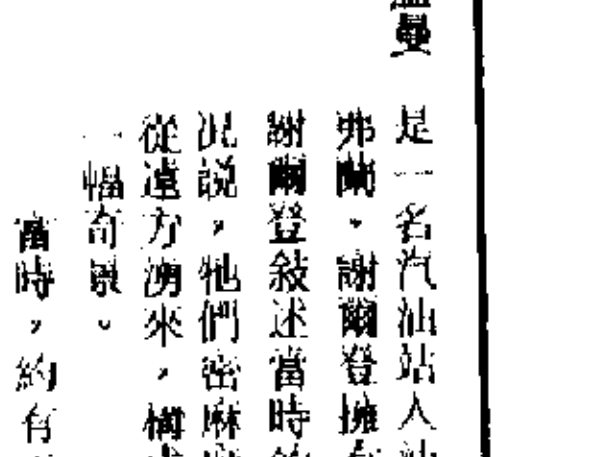 曼
是一名汽油站人油
弗蘭·謝爾登擁有
謝爾登敍述當時的
況説，牠們密麻麻
從遠方湧來，構成
一幅奇景。
當時，約有